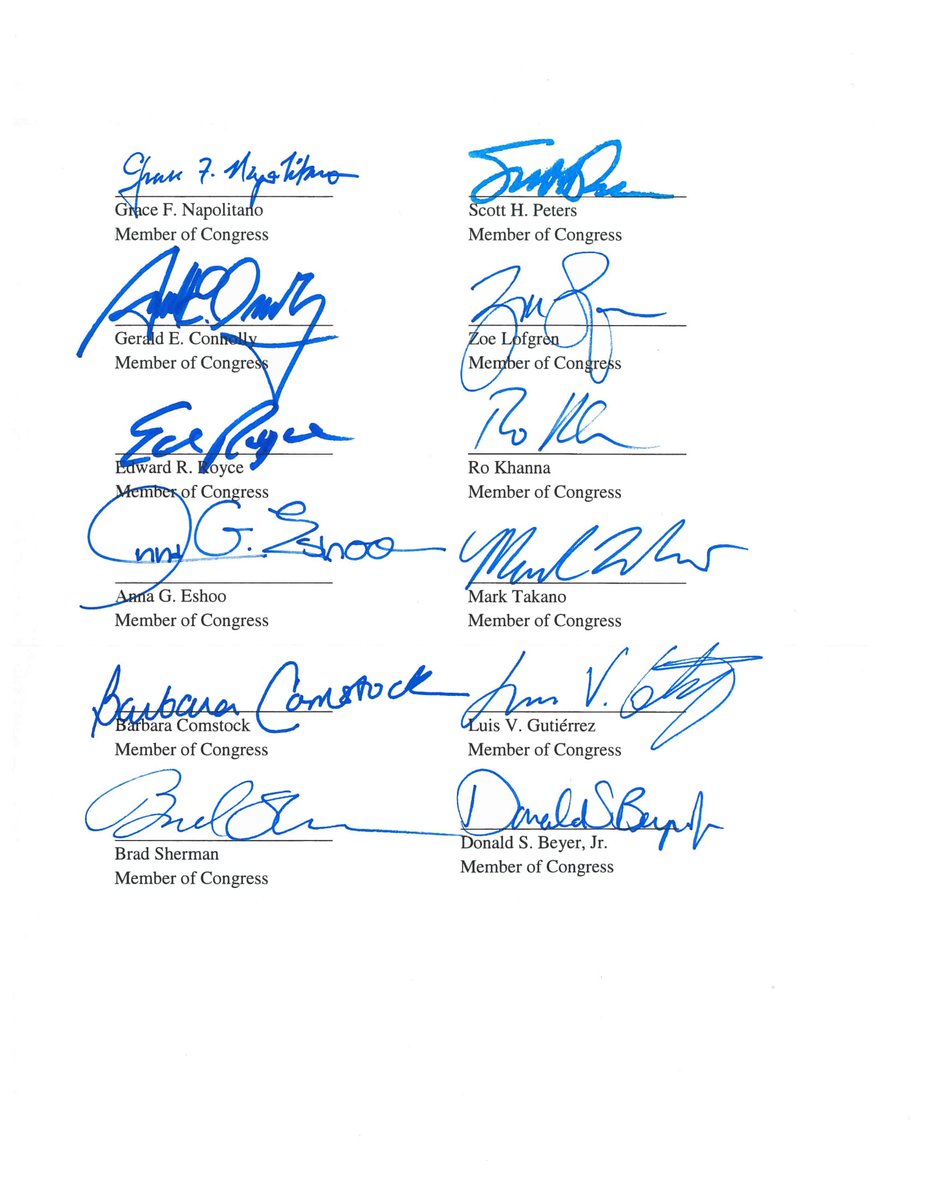 Grace F. Napolitano
Grace F. Napolitano
Member of Congress
Scott H. Peters
Member of Congress
Gerald E. Connolly
Member of Congress
Zoe Lofgren
Member of Congress
Ed Royce
Edward R. Royce
Member of Congress
Ro Khanna
Ro Khanna
Member of Congress
Anna G. Eshoo
Anna G. Eshoo
Member of Congress
Mark Takano
Member of Congress
Barbara Comstock
Barbara Comstock
Member of Congress
Luis V. Gutiérrez
Member of Congress
Brad Sherman
Member of Congress
Donald S. Beyer Jr
Donald S. Beyer, Jr.
Member of Congress